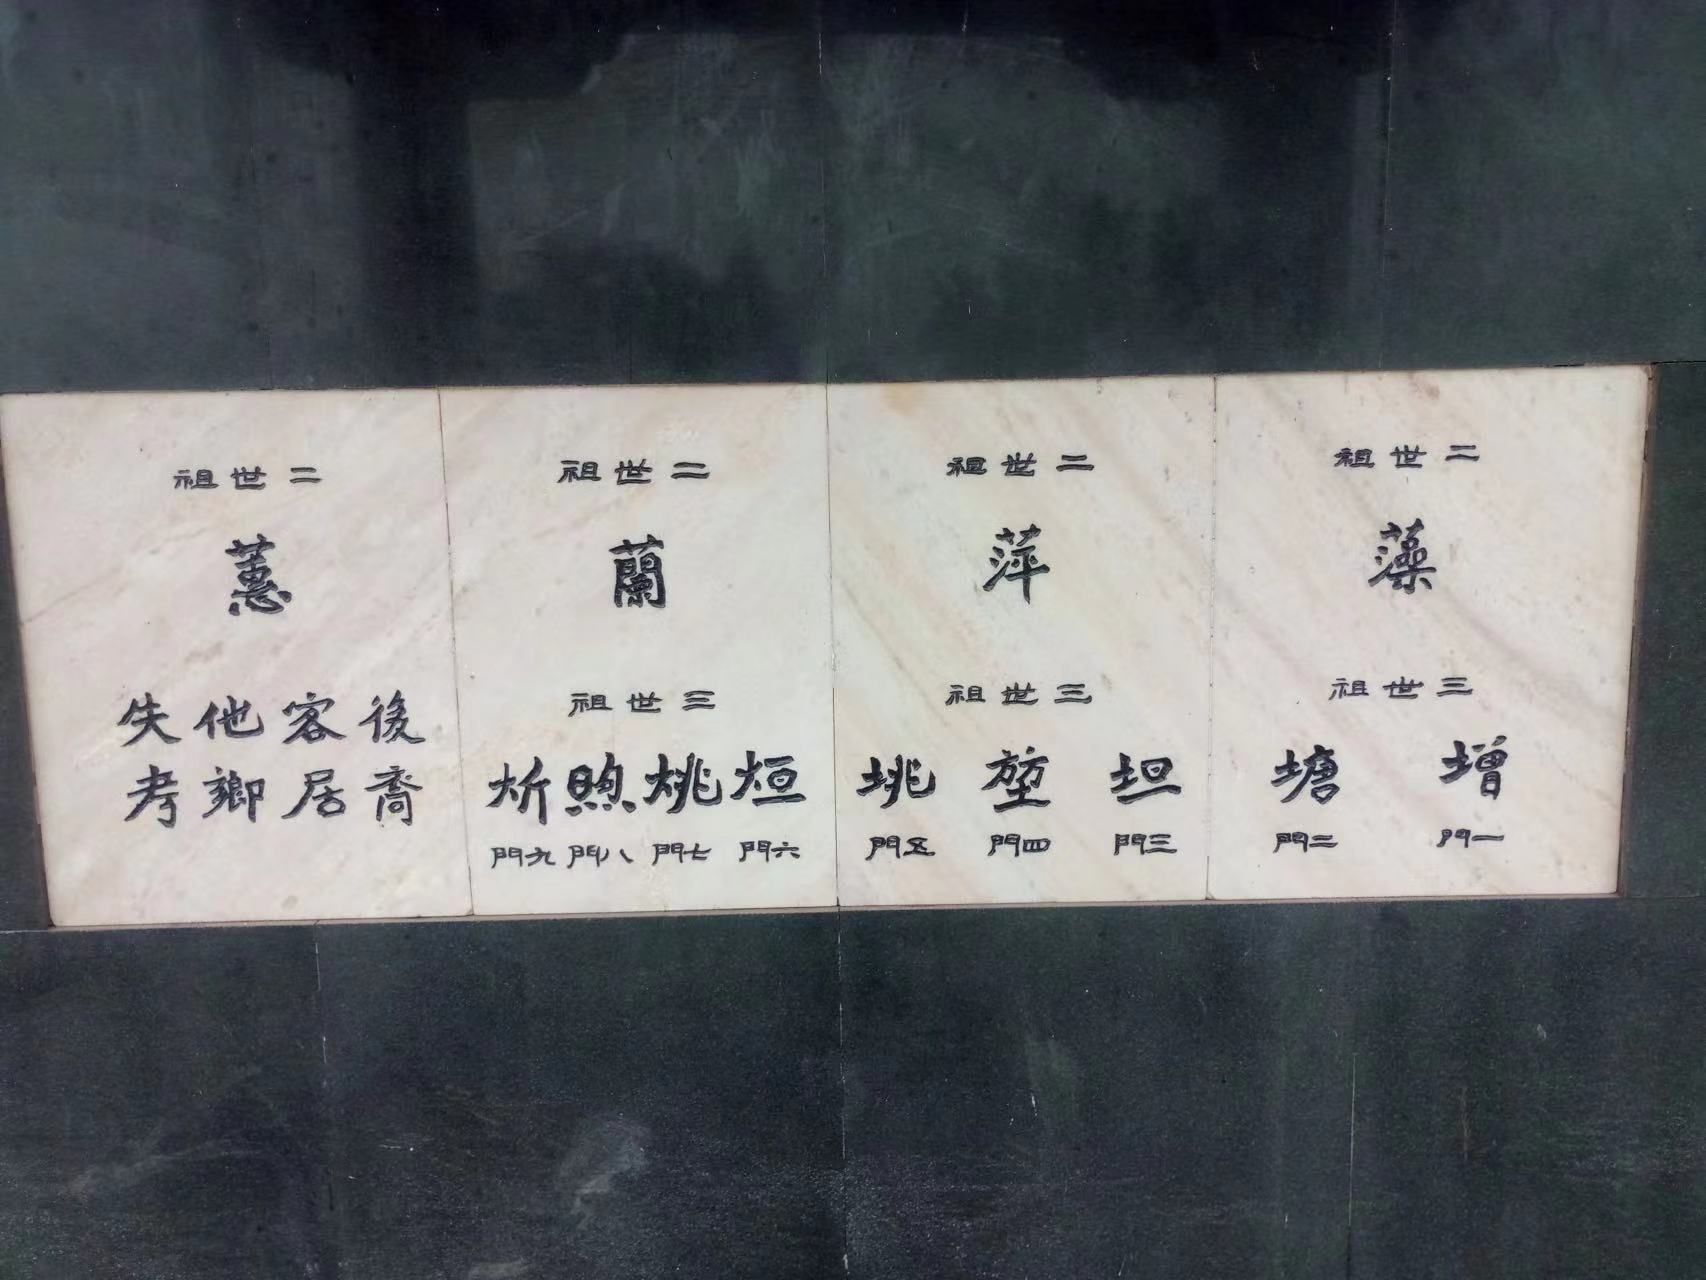 二世祖
藻
三世祖
增 塘
一門 二門
二世祖
萍
三世祖
坦 堃 垗
三門 四門 五門
二世祖
蘭
三世祖
烜 烑 煦 炘
六門 七門 八門 九門
二世祖
蕙
後裔
客居
他鄉
失考